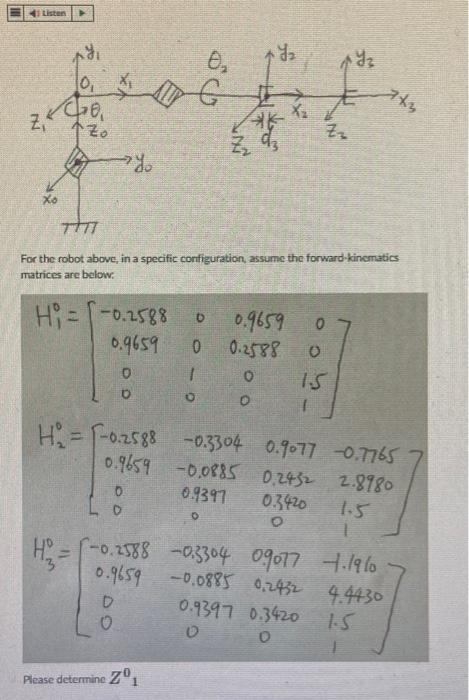 Listen
y₁ θ₂ y₂ y₃
O₁ x₁
x₂ x₃
Z₁ θ₁ Z₂ d₃ Z₃
Z₀
y₀
x₀
For the robot above, in a specific configuration, assume the forward-kinematics
matrices are below:
H⁰₁ = [ -0.2588 0 0.9659 0
0.9659 0 0.2588 0
0 1 0 1.5
0 0 0 1 ]
H⁰₂ = [ -0.2588 -0.3304 0.9077 -0.7765
0.9659 -0.0885 0.2432 2.8980
0 0.9397 0.3420 1.5
0 0 0 1 ]
H⁰₃ = [ -0.2588 -0.3304 0.9077 -1.1910
0.9659 -0.0885 0.2432 4.4430
0 0.9397 0.3420 1.5
0 0 0 1 ]
Please determine Z⁰₁